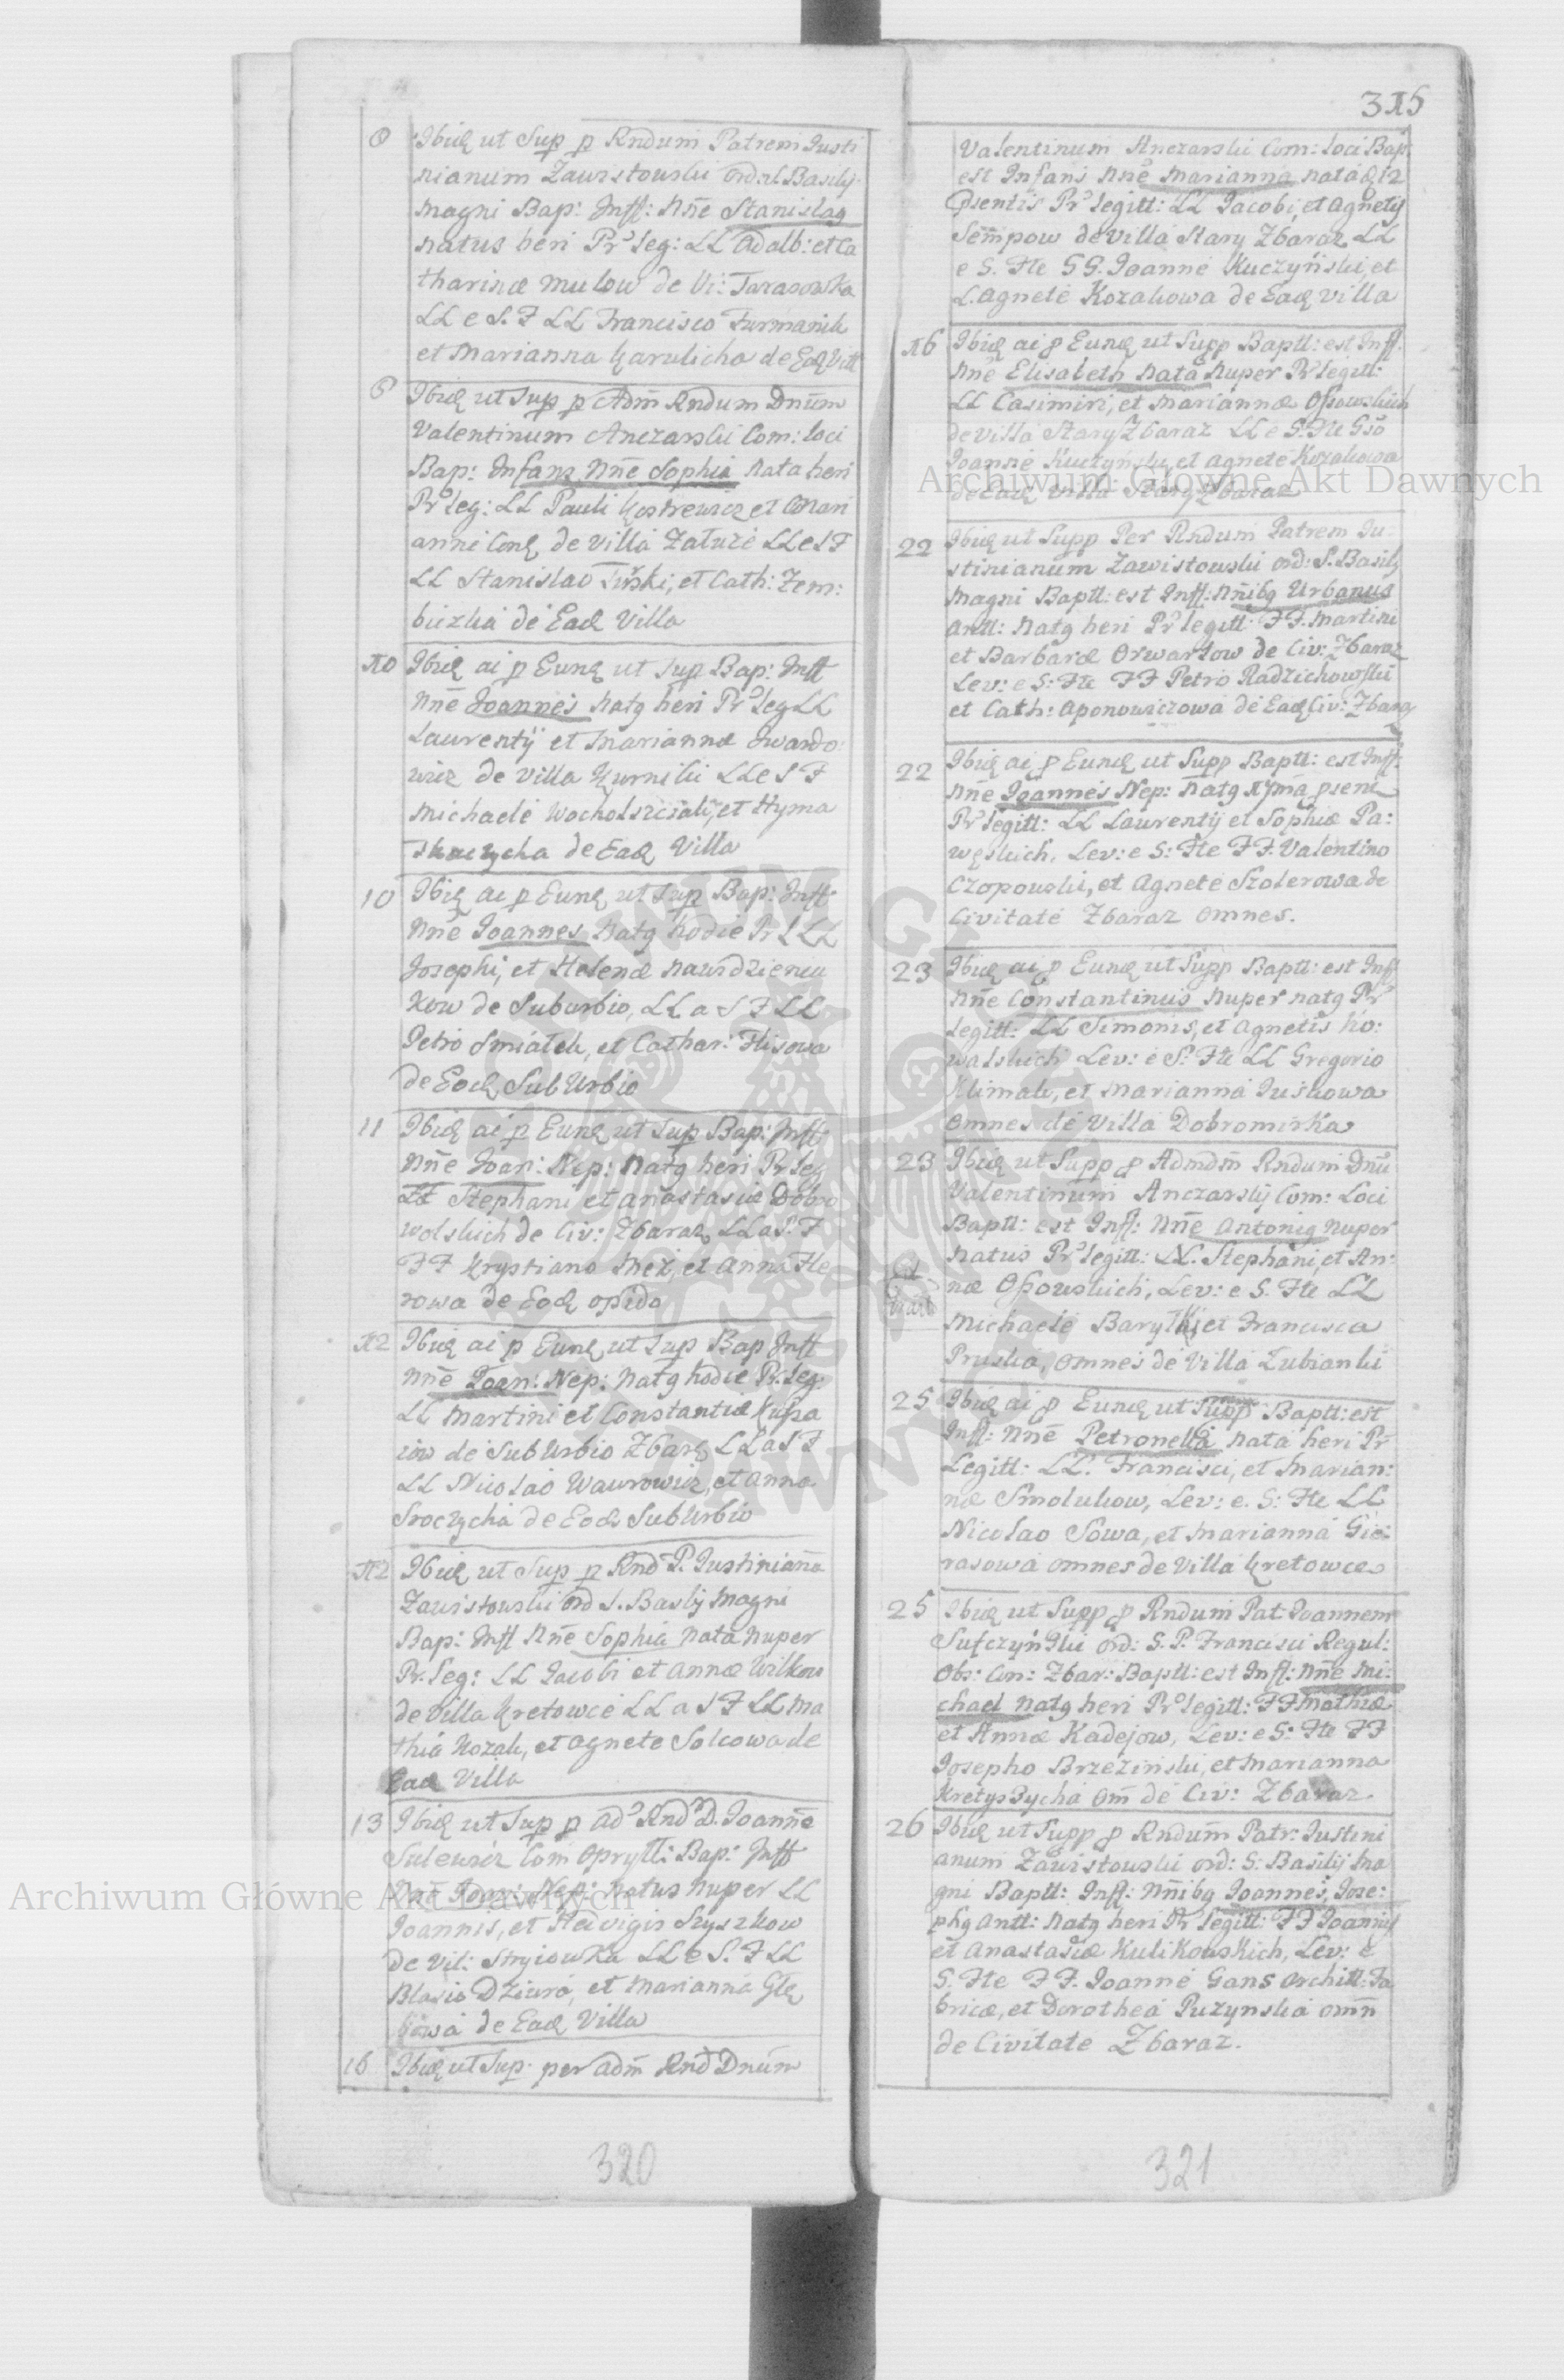 8 Ibidē ut Sup p Rndum Patrem Justi
nianum Zawistowski Ord: S. Basilij
Magni Bap: Inff: Nn̄e Stanislaq
natus heri Pr leg: LL Adalb: et Ca
tharinæ Mulow de Vi: Tarasowka
LL e S. F LL Francisco Furmanik
et Marianna Karulicha de Eaď Vill
8 Ibidē ut Sup p Adm̄ Rndum Dnūm
Valentinum Anczarski Com: loci
Bap: Infans Nn̄e Sophia Nata heri
Pr leg: LL Pauli Kostrewicz et Mari
anne Conḡ de Villa Załuże LL e S F
LL Stanislao et Cath: Zem:
bicka de Eaď Villa
10 Ibidē ac p Eunď ut Sup Bap: Inff
Nn̄e Joannes Natq heri Pr leg LL
Laurentij et Mariannæ Iwando:
wicz de Villa Kurniki LL e S F
Michaele et Hyma
Tkaczycha de Eaď Villa
10 Ibidē ac p Eunď ut Sup Bap: Inff:
Nn̄e Joannes Natq hodie Pr L LL
Josephi, et Helenæ Nawrdzieniu
kow de Suburbio, LL a S F LL
Petro Smiałek, et Cathar: Flisowa
de Eoď SubUrbio
11 Ibidē ac p Eunď ut Sup Bap: Inff:
Nn̄e Joan: Nep: Natq heri Pr leg
LL Stephani et Anastasiæ Dobro
wolskich de Civ: Zbaraz, LL a S. F
FF Krystiano Mez, et Anna Fle
rowa de Eoď opido
12 Ibidē ac p Eunď ut Sup Bap Inff
Nn̄e Joan: Nep: Natq hodie Pr. leg:
LL Martini et Constantiæ Kupa
iow de SubUrbio Zbarḡ LL a S F
LL Nicolao Wawrowicz, et Anna
Sroczycha de Eoď SubUrbio
12 Ibidē ut Sup p Rnd P. Justinianū
Zawistowski Ord S. Baslij Magni
Bap: Inff Nn̄e Sophia Nata Nuper
Pr. leg: LL Jacobi et Annæ Wilkow
de Villa Kretowce LL a S F LL Ma
thia Kozak, et Agnete Solcowa de
Eaď Villa
13 Ibidē ut Sup p Ad Rnd D. Joann̄e
Sulewicz Com Bap: Inff
Nn̄e Joan: Nep: Natus Nuper LL
Joannis, et Hedvigis Szyszkow
de Vil: Stryiowka LL e S. F LL
Blasio Dziura, et Marianna Głę
bowa de Eaď Villa
16 Ibidē ut Sup: per Adm̄ Rnd Dnūm
320
315
Valentinum Anczarski Com: loci Bap:
est Infans Nn̄e Marianna nata ď 12
Psentis Pr legitt: LL Jacobi, et Agnetij
Sempow de Villa Stary Zbaraz LL
e S. Fte GG. Joanne Kuczyński, et
L. Agnete Kozakowa de Eaď Villa
16 Ibidē ac p Eunď ut Supp Baptt: est Inff:
Nn̄e Elisabeth Nata Nuper Pr legitt:
LL Casimiri, et Mariannæ Ossowskich
de Villa Stary Zbaraz LL e S: Fte Gso
Joanne Kuczyński, et Agnete Kozakowa
de Eaď Villa Stary Zbaraz
22 Ibidē ut Supp Per Rndum Patrem Ju:
stinianum Zawistowski Ord: S. Basilij
Magni Baptt: est Inff: Nn̄ibq Urbanus
Antt: Natq heri Pr legitt: FF. Martini
et Barbaræ Orwartow de Civ: Zbaraz
Lev: e S: Fte FF Petro Radzichowski
et Cath: Aponowiczowa de Eaď Civ: Zbaraz
22 Ibidē ac p Eunď ut Supp Baptt: est Inff:
Nn̄e Joannes Nep: Natq 17ma psent
Pr legitt: LL Laurentij et Sophiæ Pa:
węskich, Lev: e S: Fte FF. Valentino
Czopowski, et Agnete Szolerowa de
Civitate Zbaraz Omnes.
23 Ibidē ac p Eunď ut Supp Baptt: est Inff
Nn̄e Constantinus Nuper natq Pr
legitt: LL Simonis, et Agnetis Ko:
walskich Lev: e S: Fte LL Gregorio
Klimak, et Marianna Juskowa
Omnes de Villa Dobromirka
23 Ibidē ut Supp p Admdm̄ Rndum Dnū
Valentinum Anczarskij Com: Loci
Baptt: est Inff: Nn̄e Antoniq Nuper
natus Pr legitt: LL. Stephani, et An:
næ Ossowskich, Lev: e S. Fte LL
Michaele et Francisca
Pruska, Omnes de Villa Lubianki
25 Ibidē ac p Eunď ut Supp Baptt: est
Inff: Nn̄e Petronella Nata heri Pr
Legitt: LL. Francisci, et Marian:
næ Smolukow, Lev: e. S: Fte LL
Nicolao Sowa, et Marianna Gie:
rasowa Omnes de Villa Kretowce
25 Ibidē ut Supp p Rndum Pat Joannem
Sufczyński Ord: S. P. Francisci Regul:
Obs: Con: Zbar: Baptt: est Inff: Nn̄e Mi:
chael Natq heri Pr legitt: FF Mathiæ
et Annæ Kadejow, Lev: e S: Fte FF
Josepho Brzezinski, et Marianna
Om̄ de Civ: Zbaraz.
26 Ibidē ut Supp p Rndum̄ Patr: Justini
anum Zawistowski Ord: S: Basilij Ma
gni Baptt: Inff: Nn̄ibq Joannes, Jose:
phq Antt: Natq heri Pr legitt: FF Joannis
et Anastasiæ Kulikowskich, Lev: e
S. Fte FF. Joanne Gans Architt: Fa
bricæ, et Dorothea Puzynska Omn̄
de Civitate Zbaraz.
321
Archiwum Główne Akt Dawnych
Archiwum Główne Akt Dawnych